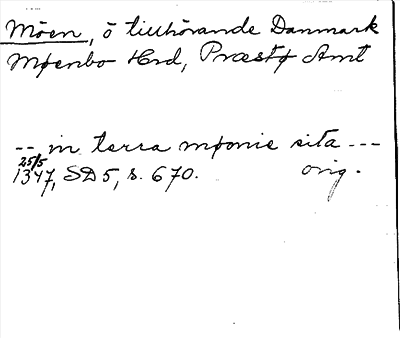 Möen, ö tillhörande Danmark
Møenbo Hrd, Præstø Amt
-- in terra møonie sita ---
25/5
1347, SD 5, s. 670. orig.